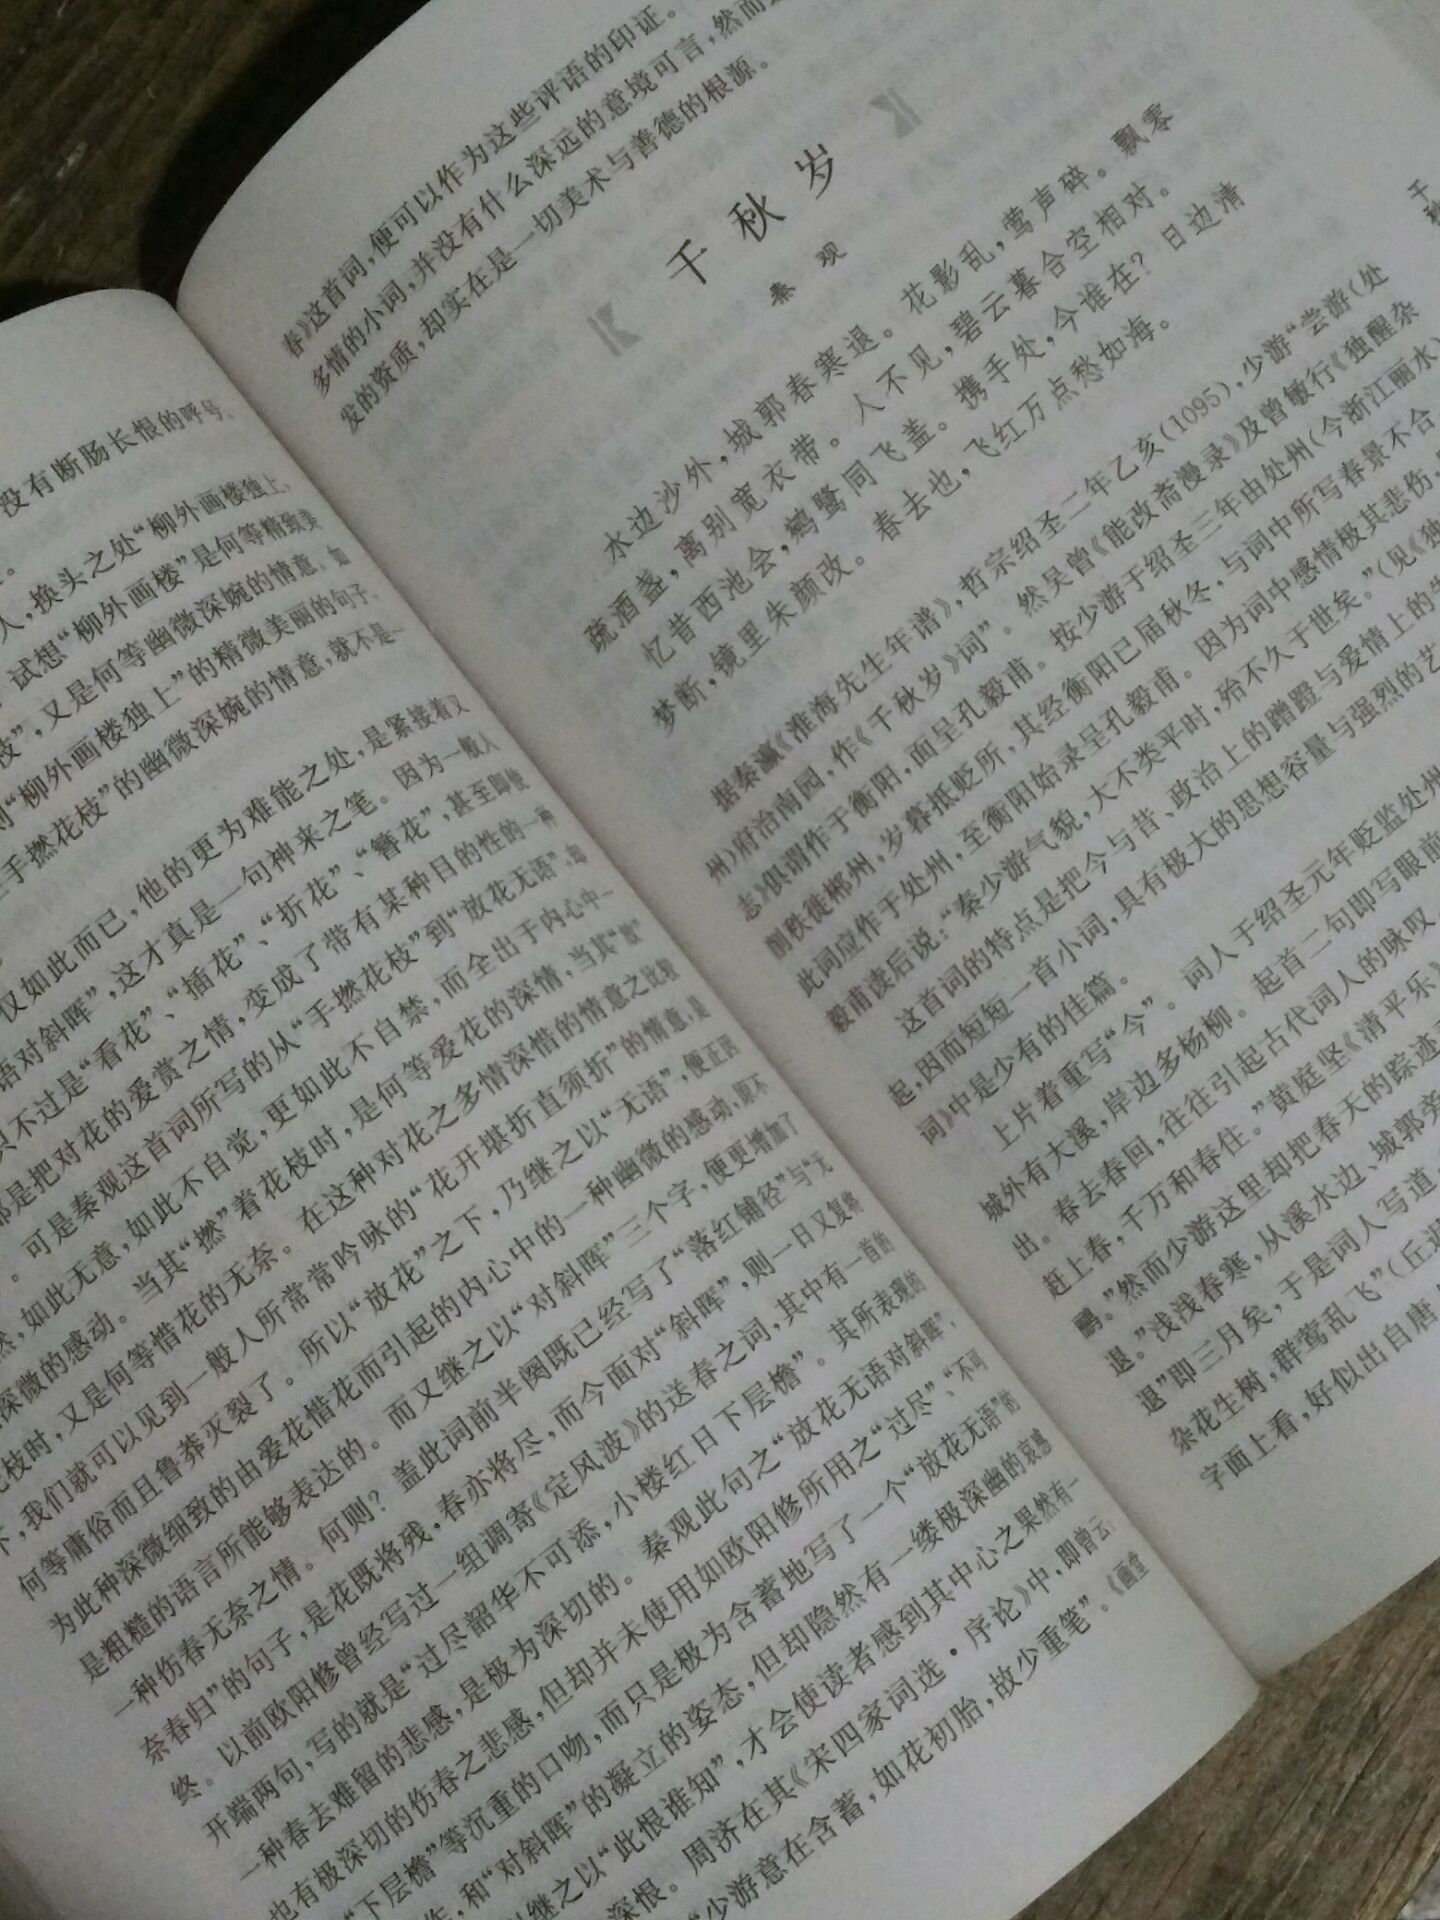 没有断肠长恨的呼号，
人，换头之处“柳外画楼独上，
试想“柳外画楼”是何等精致美
枝”，又是何等幽微深婉的情意。如
“柳外画楼独上”的精微美丽的句子，
手撚花枝”的幽微深婉的情意，就不是一
仅如此而已，他的更为难能之处，是紧接着又
语对斜晖”，这才真是一句神来之笔。因为一般人
只不过是“看花”、“插花”、“折花”、“簪花”，甚至即使
都是把对花的爱赏之情，变成了带有某种目的性的一种
。可是秦观这首词所写的从“手撚花枝”到“放花无语”，却
然，如此无意，如此不自觉，更如此不自禁，而全出于内心中一
深微的感动。当其“撚”着花枝时，是何等爱花的深情，当其“放”
花枝时，又是何等惜花的无奈。在这种对花之多情深惜的情意之比较
下，我们就可以见到一般人所常常吟咏的“花开堪折直须折”的情意，是
何等庸俗而且鲁莽灭裂了。所以“放花”之下，乃继之以“无语”，便正因
为此种深微细致的由爱花惜花而引起的内心中的一种幽微的感动，原不
是粗糙的语言所能够表达的。而又继之以“对斜晖”三个字，便更增加了
一种伤春无奈之情。何则？盖此词前半阕既已经写了“落红铺径”与“无
奈春归”的句子，是花既将残，春亦将尽，而今面对“斜晖”，则一日又复将
终。以前欧阳修曾经写过一组调寄《定风波》的送春之词，其中有一首的
开端两句，写的就是“过尽韶华不可添，小楼红日下层檐”。其所表现的
一种春去难留的悲感，是极为深切的。秦观此句之“放花无语对斜晖”，
也有极深切的伤春之悲感，但却并未使用如欧阳修所用之“过尽”、“不可
“下层檐”等沉重的口吻，而只是极为含蓄地写了一个“放花无语”的
作，和“对斜晖”的凝立的姿态，但却隐然有一缕极深幽的哀感
继之以“此恨谁知”，才会使读者感到其中心之果然有一
深恨。周济在其《宋四家词选·序论》中，即曾云：
“少游意在含蓄，如花初胎，故少重笔”。《画堂
春》这首词，便可以作为这些评语的印证。
多情的小词，并没有什么深远的意境可言，然而
发的资质，却实在是一切美术与善德的根源。
千秋岁
秦观
水边沙外，城郭春寒退。花影乱，莺声碎。飘零
疏酒盏，离别宽衣带。人不见，碧云暮合空相对。
忆昔西池会，鹓鹭同飞盖。携手处，今谁在？日边清
梦断，镜里朱颜改。春去也，飞红万点愁如海。
据秦瀛《淮海先生年谱》，哲宗绍圣二年乙亥（1095），少游“尝游（处
州）府治南园，作《千秋岁》词”。然吴曾《能改斋漫录》及曾敏行《独醒杂
志》俱谓作于衡阳，面呈孔毅甫。按少游于绍圣三年由处州（今浙江丽水）
削秩徙郴州，岁暮抵贬所，其经衡阳已届秋冬，与词中所写春景不合，
此词应作于处州，至衡阳始录呈孔毅甫。因为词中感情极其悲伤，
毅甫读后说：“秦少游气貌，大不类平时，殆不久于世矣。”（见《独
这首词的特点是把今与昔、政治上的蹭蹬与爱情上的失
起，因而短短一首小词，具有极大的思想容量与强烈的艺
词》中是少有的佳篇。
上片着重写“今”。词人于绍圣元年贬监处州
城外有大溪，岸边多杨柳。起首二句即写眼前
出。春去春回，往往引起古代词人的咏叹，
赶上春，千万和春住。”黄庭坚《清平乐》
鹂。”然而少游这里却把春天的踪迹
退。”浅浅春寒，从溪水边、城郭旁
退”即三月矣，于是词人写道，
杂花生树，群莺乱飞”（丘迟
字面上看，好似出自唐
千